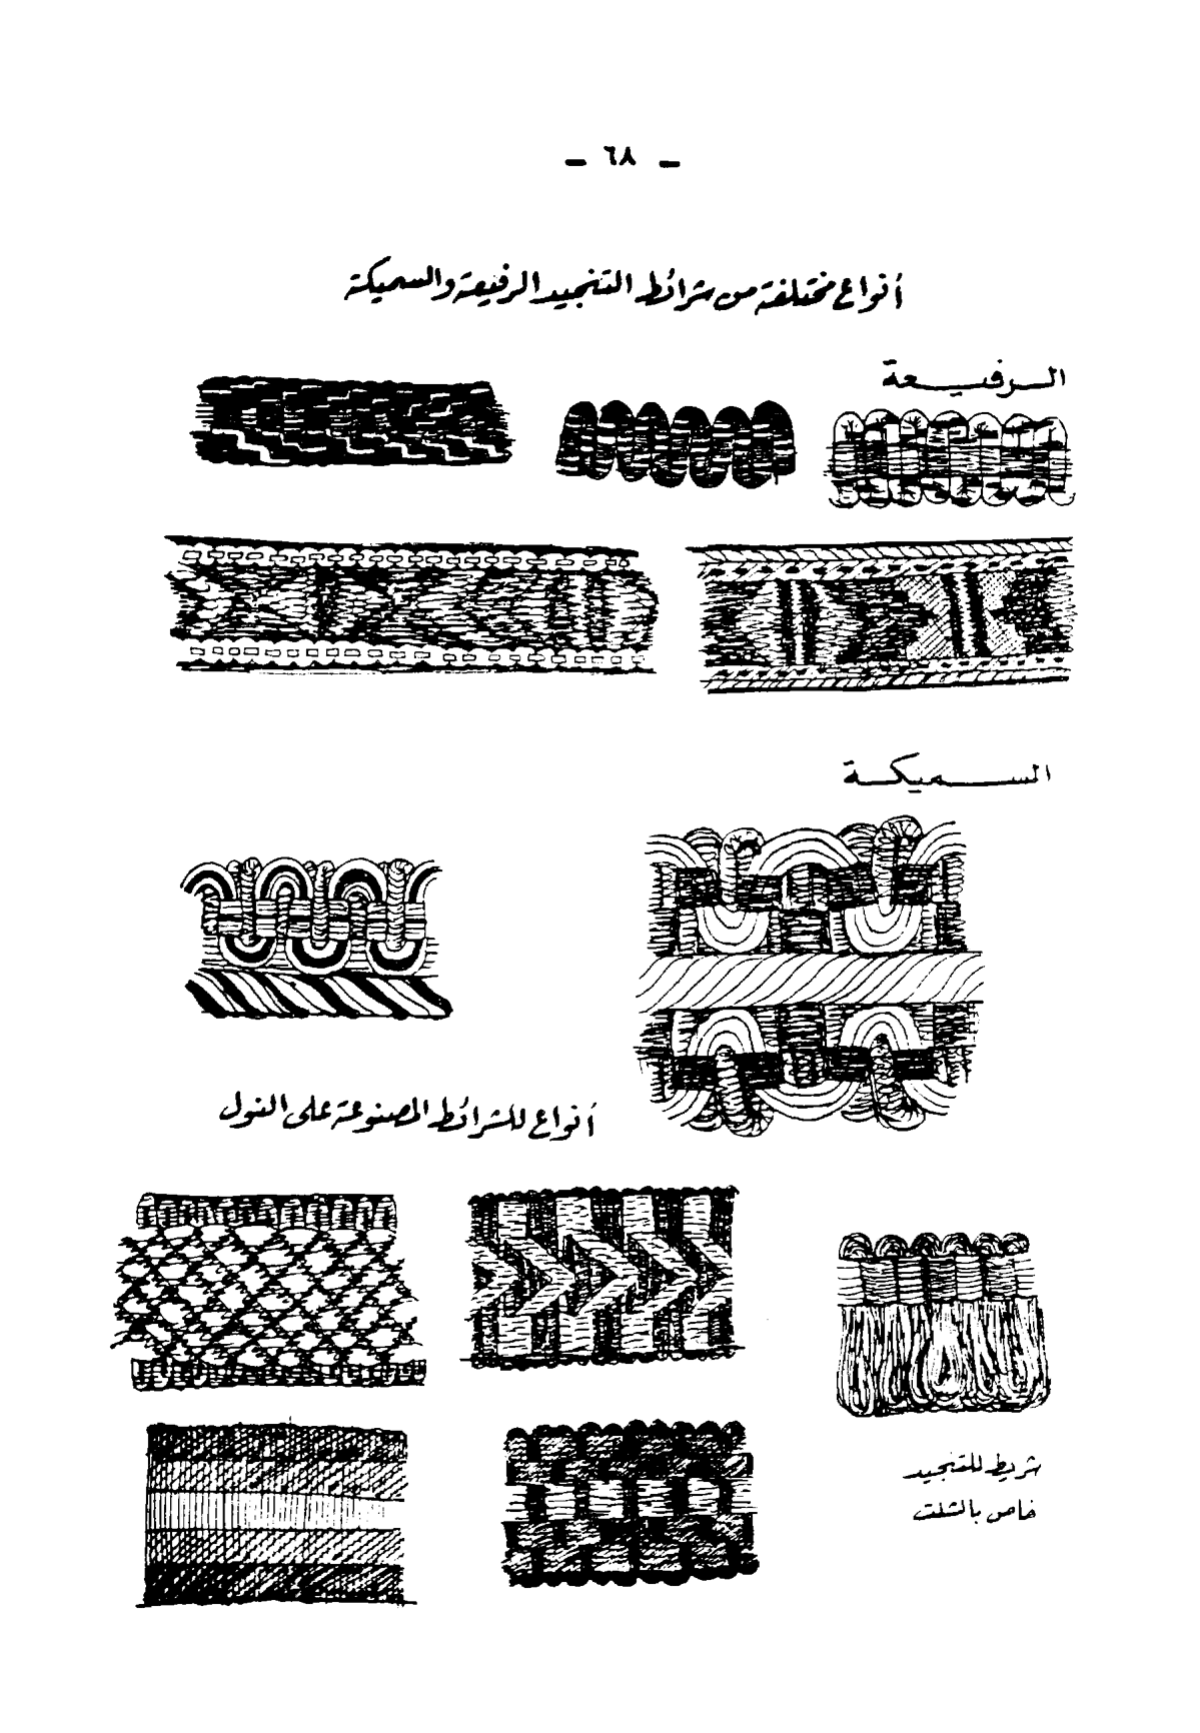 - ٦٨ -
أنواع مختلفة من شرائط التنجيد الرفيعة والسميكة
الرفيعة
السميكة
أنواع للشرائط المصنوعة على النول
شريط للتنجيد
خاص بالشلت